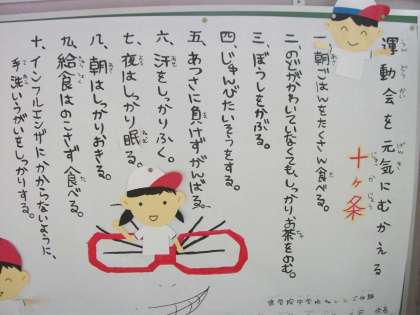 運動会を元気にむかえる
十ヶ条
一、朝ごはんをたくさん食べる。
二、のどがかわいていなくても、しっかりお茶をのむ。
三、ぼうしをかぶる。
四、じゅんびたいそうをする。
五、あつさに負けずがんばる。
六、汗をしっかりふく。
七、夜はしっかり眠る。
八、朝はしっかりおきる。
九、給食はのこさず食べる。
十、インフルエンザにかからないように、
手洗いうがいをしっかりする。